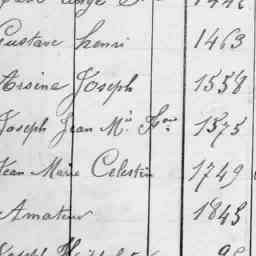 Gustave Henri 1463
Arsène Joseph 1558
Joseph Jean M.ie F.ois 1575
Jean Marie Celestin 1749
Amateur 1845
Joseph